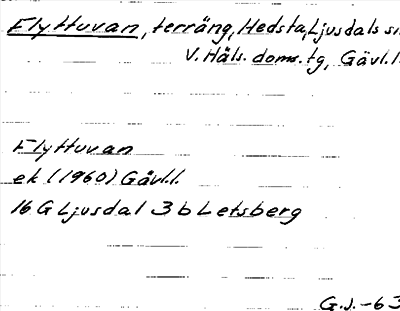 Flyttuvan, terräng, Hedsta, Ljusdals sn.
V. Häls. doms. tg, Gävl. l.
Flyttuvan
ek (1960) Gävl. l.
16 G Ljusdal 3 b Letsberg
G. J. -63